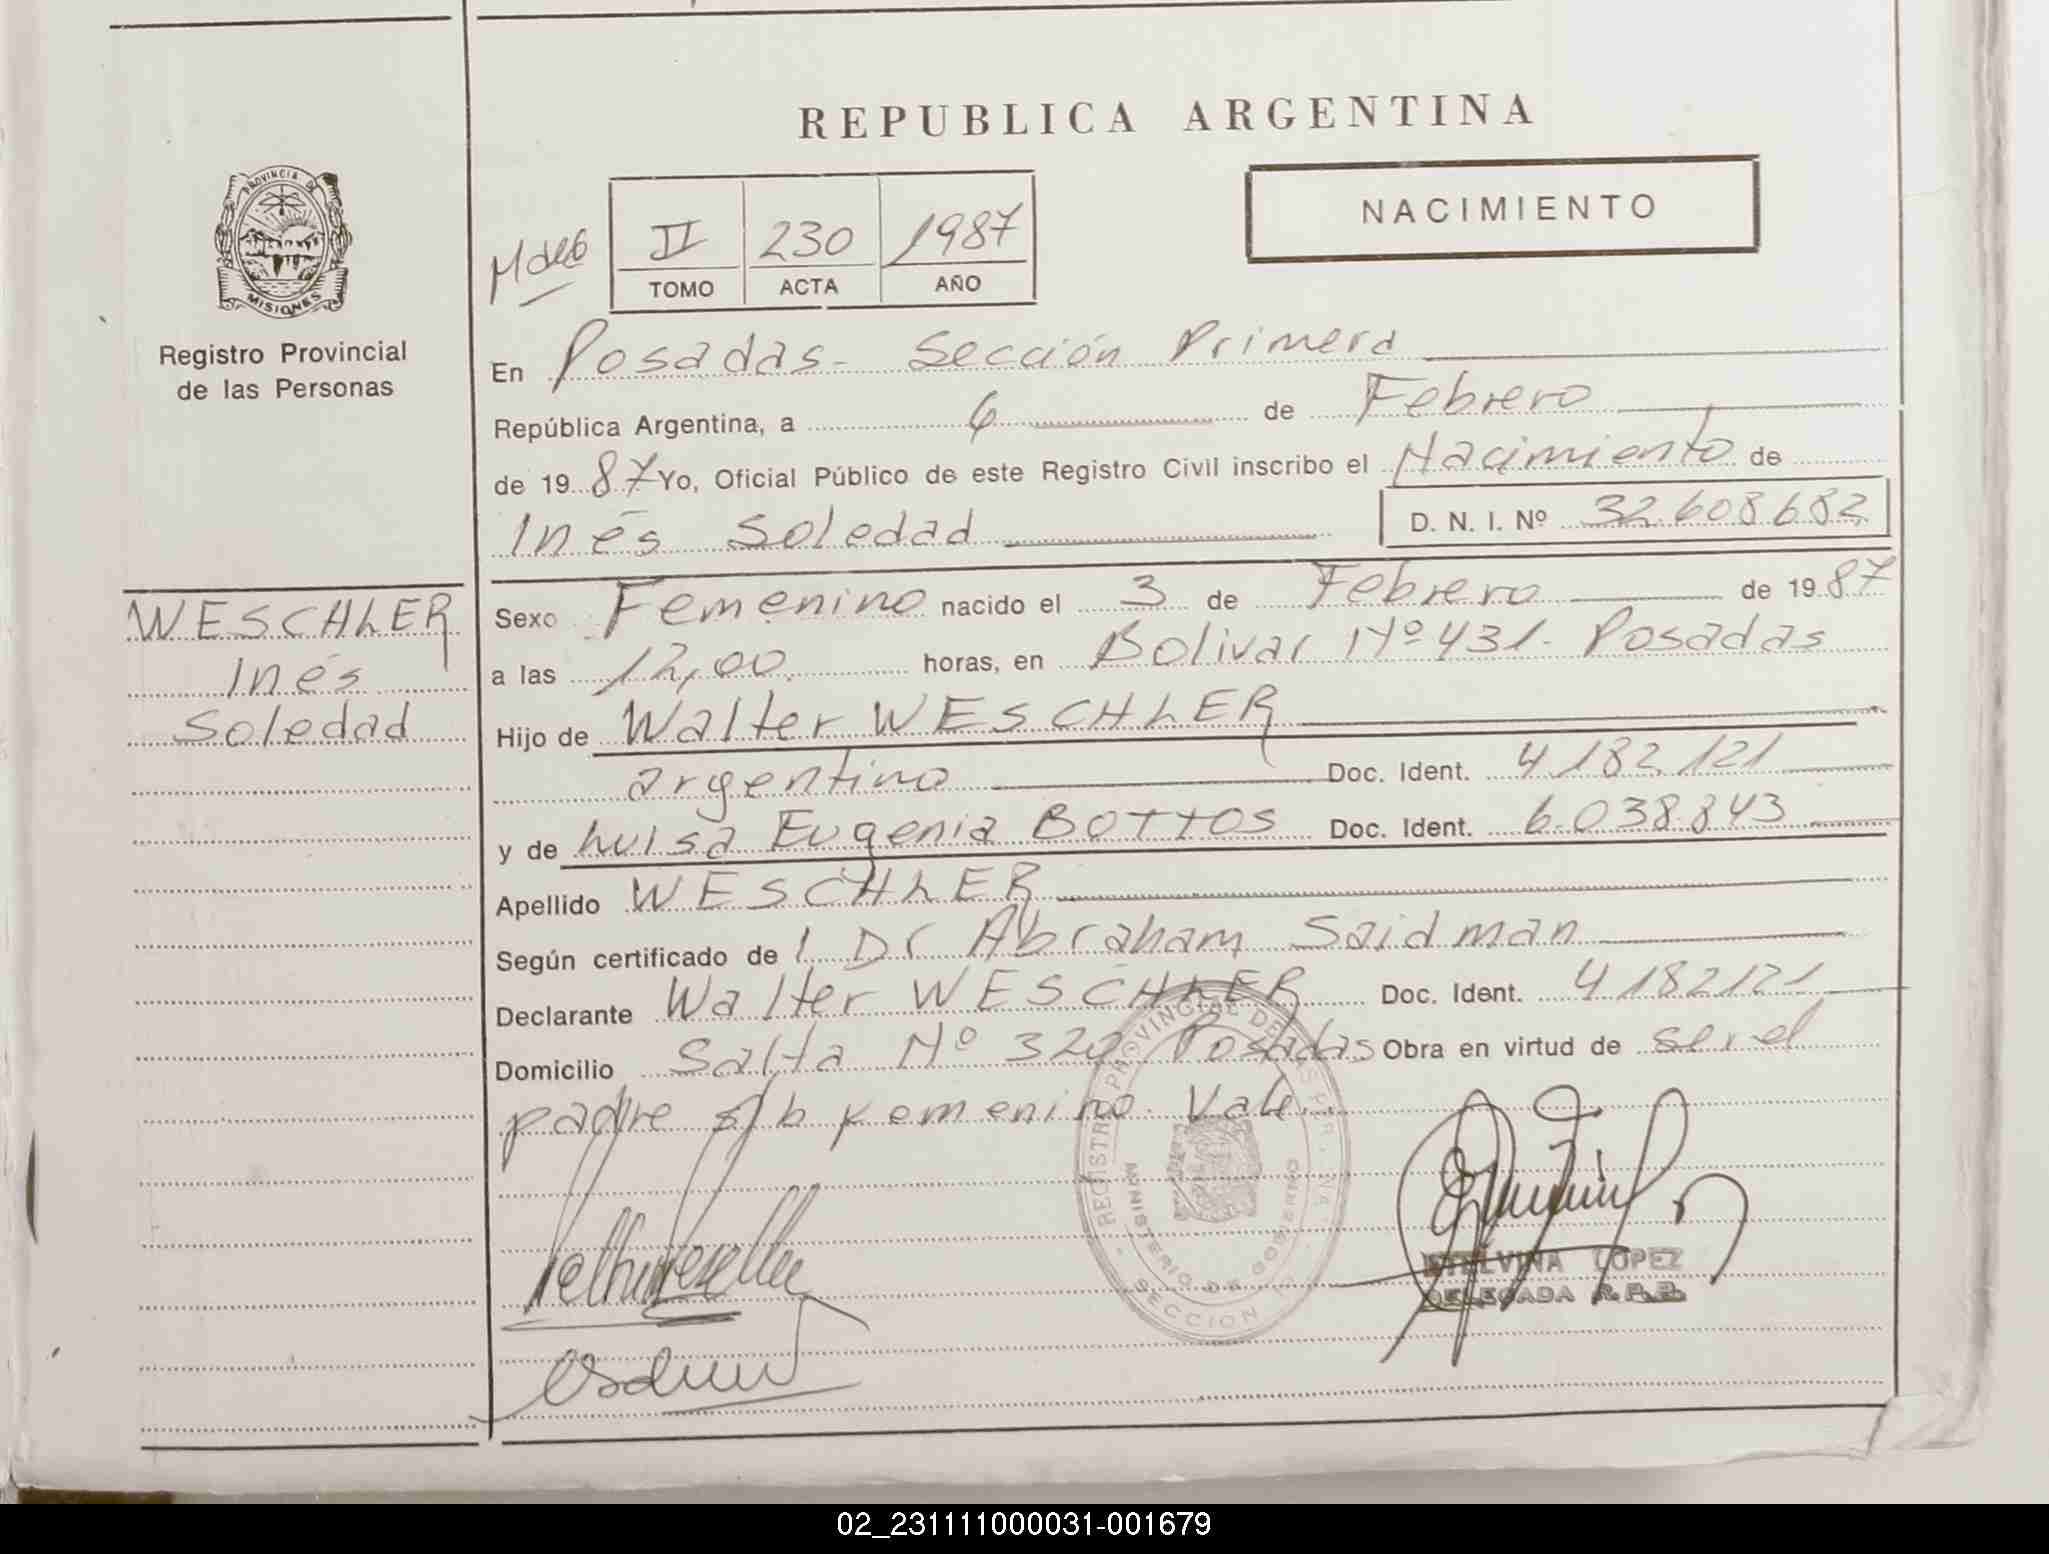 REPUBLICA ARGENTINA
PROVINCIA DE
MISIONES
Registro Provincial
de las Personas
NACIMIENTO
II 230 1987
TOMO ACTA AÑO
En Posadas - Sección Primera
República Argentina, a 6 de Febrero
de 1987 Yo, Oficial Público de este Registro Civil inscribo el Nacimiento de
Inés Soledad D. N. I. Nº 32.608.682
WESCHLER
Inés
Soledad
Sexo Femenino nacido el 3 de Febrero de 1987
a las 12,00 horas, en Bolivar Nº 431 - Posadas
Hijo de Walter WESCHLER
argentino Doc. Ident. 4.182.121
y de Luisa Eugenia BOTTOS Doc. Ident. 6.038.843
Apellido WESCHLER
Según certificado de l Dr Abraham Saidman
Declarante Walter WESCHLER Doc. Ident. 4182121
Domicilio Salta Nº 320 Posadas Obra en virtud de ser el
padre s/b Femenino. Vale.
REGISTRO PROVINCIAL DE LAS PER
MINISTERIO DE GOBIERNO
SECCION
ETELVINA LOPEZ
DELEGADA R.P.P.
02_231111000031-001679